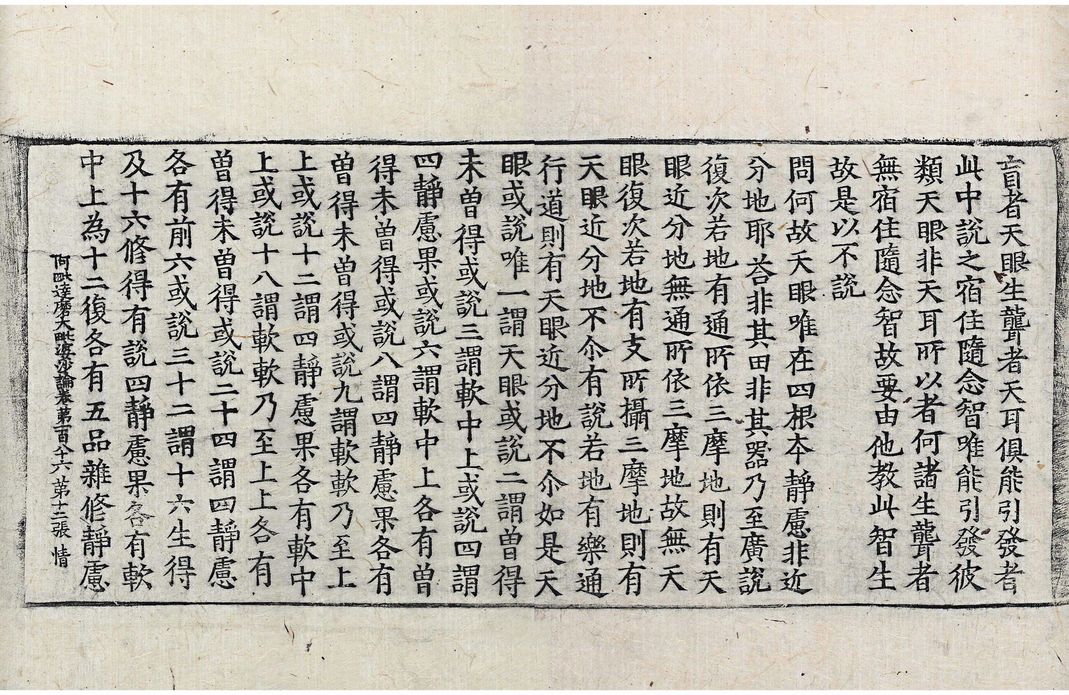 盲者天眼生聾者天耳俱能引發者
此中說之宿住隨念智唯能引發彼
類天眼非天耳所以者何諸生聾者
無宿住隨念智故要由他教此智生
故是以不說
問何故天眼唯在四根本靜慮非近
分地耶荅非其田非其器乃至廣說
復次若地有通所依三摩地則有天
眼近分地無通所依三摩地故無天
眼復次若地有支所攝三摩地則有
天眼近分地不尒有說若地有樂通
行道則有天眼近分地不尒如是天
眼或說唯一謂天眼或說二謂曽得
未曽得或說三謂軟中上或說四謂
四靜慮果或說六謂軟中上各有曽
得未曽得或說八謂四靜慮果各有
曽得未曽得或說九謂軟軟乃至上
上或說十二謂四靜慮果各有軟中
上或說十八謂軟軟乃至上上各有
曽得未曽得或說二十四謂四靜慮
各有前六或說三十二謂十六生得
及十六修得有說四靜慮果各有軟
中上為十二復各有五品雜修靜慮
阿毗達磨大毗婆沙論卷第一百八十六 第十二張 情